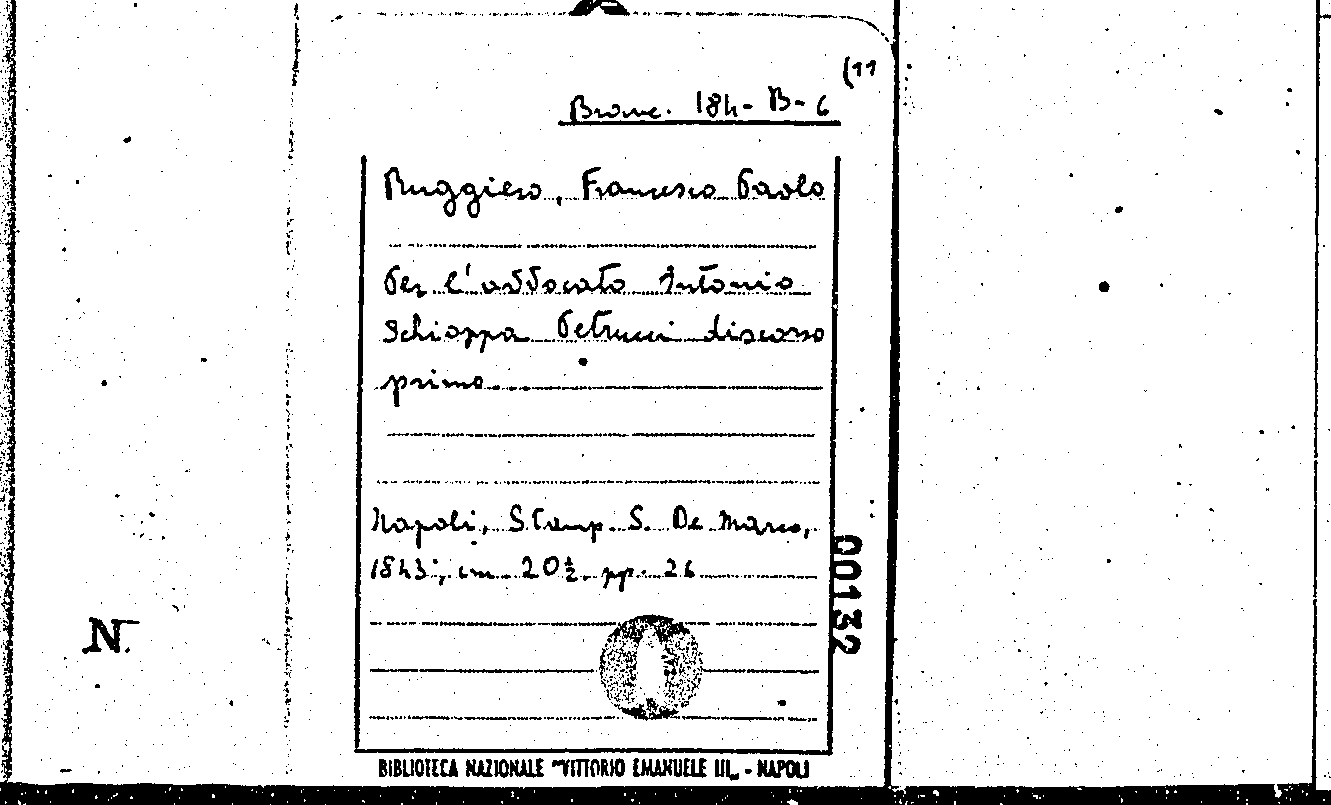 (11
Branc. 184-B-6
Ruggiero, Francesco Paolo
Per l'avvocato Antonio
Schiappa Petrucci discorso
primo
Napoli, Stamp. S. De Marco,
1843; cm. 20½ pp. 26
00132
N.
BIBLIOTECA NAZIONALE "VITTORIO EMANUELE III„ - NAPOLI